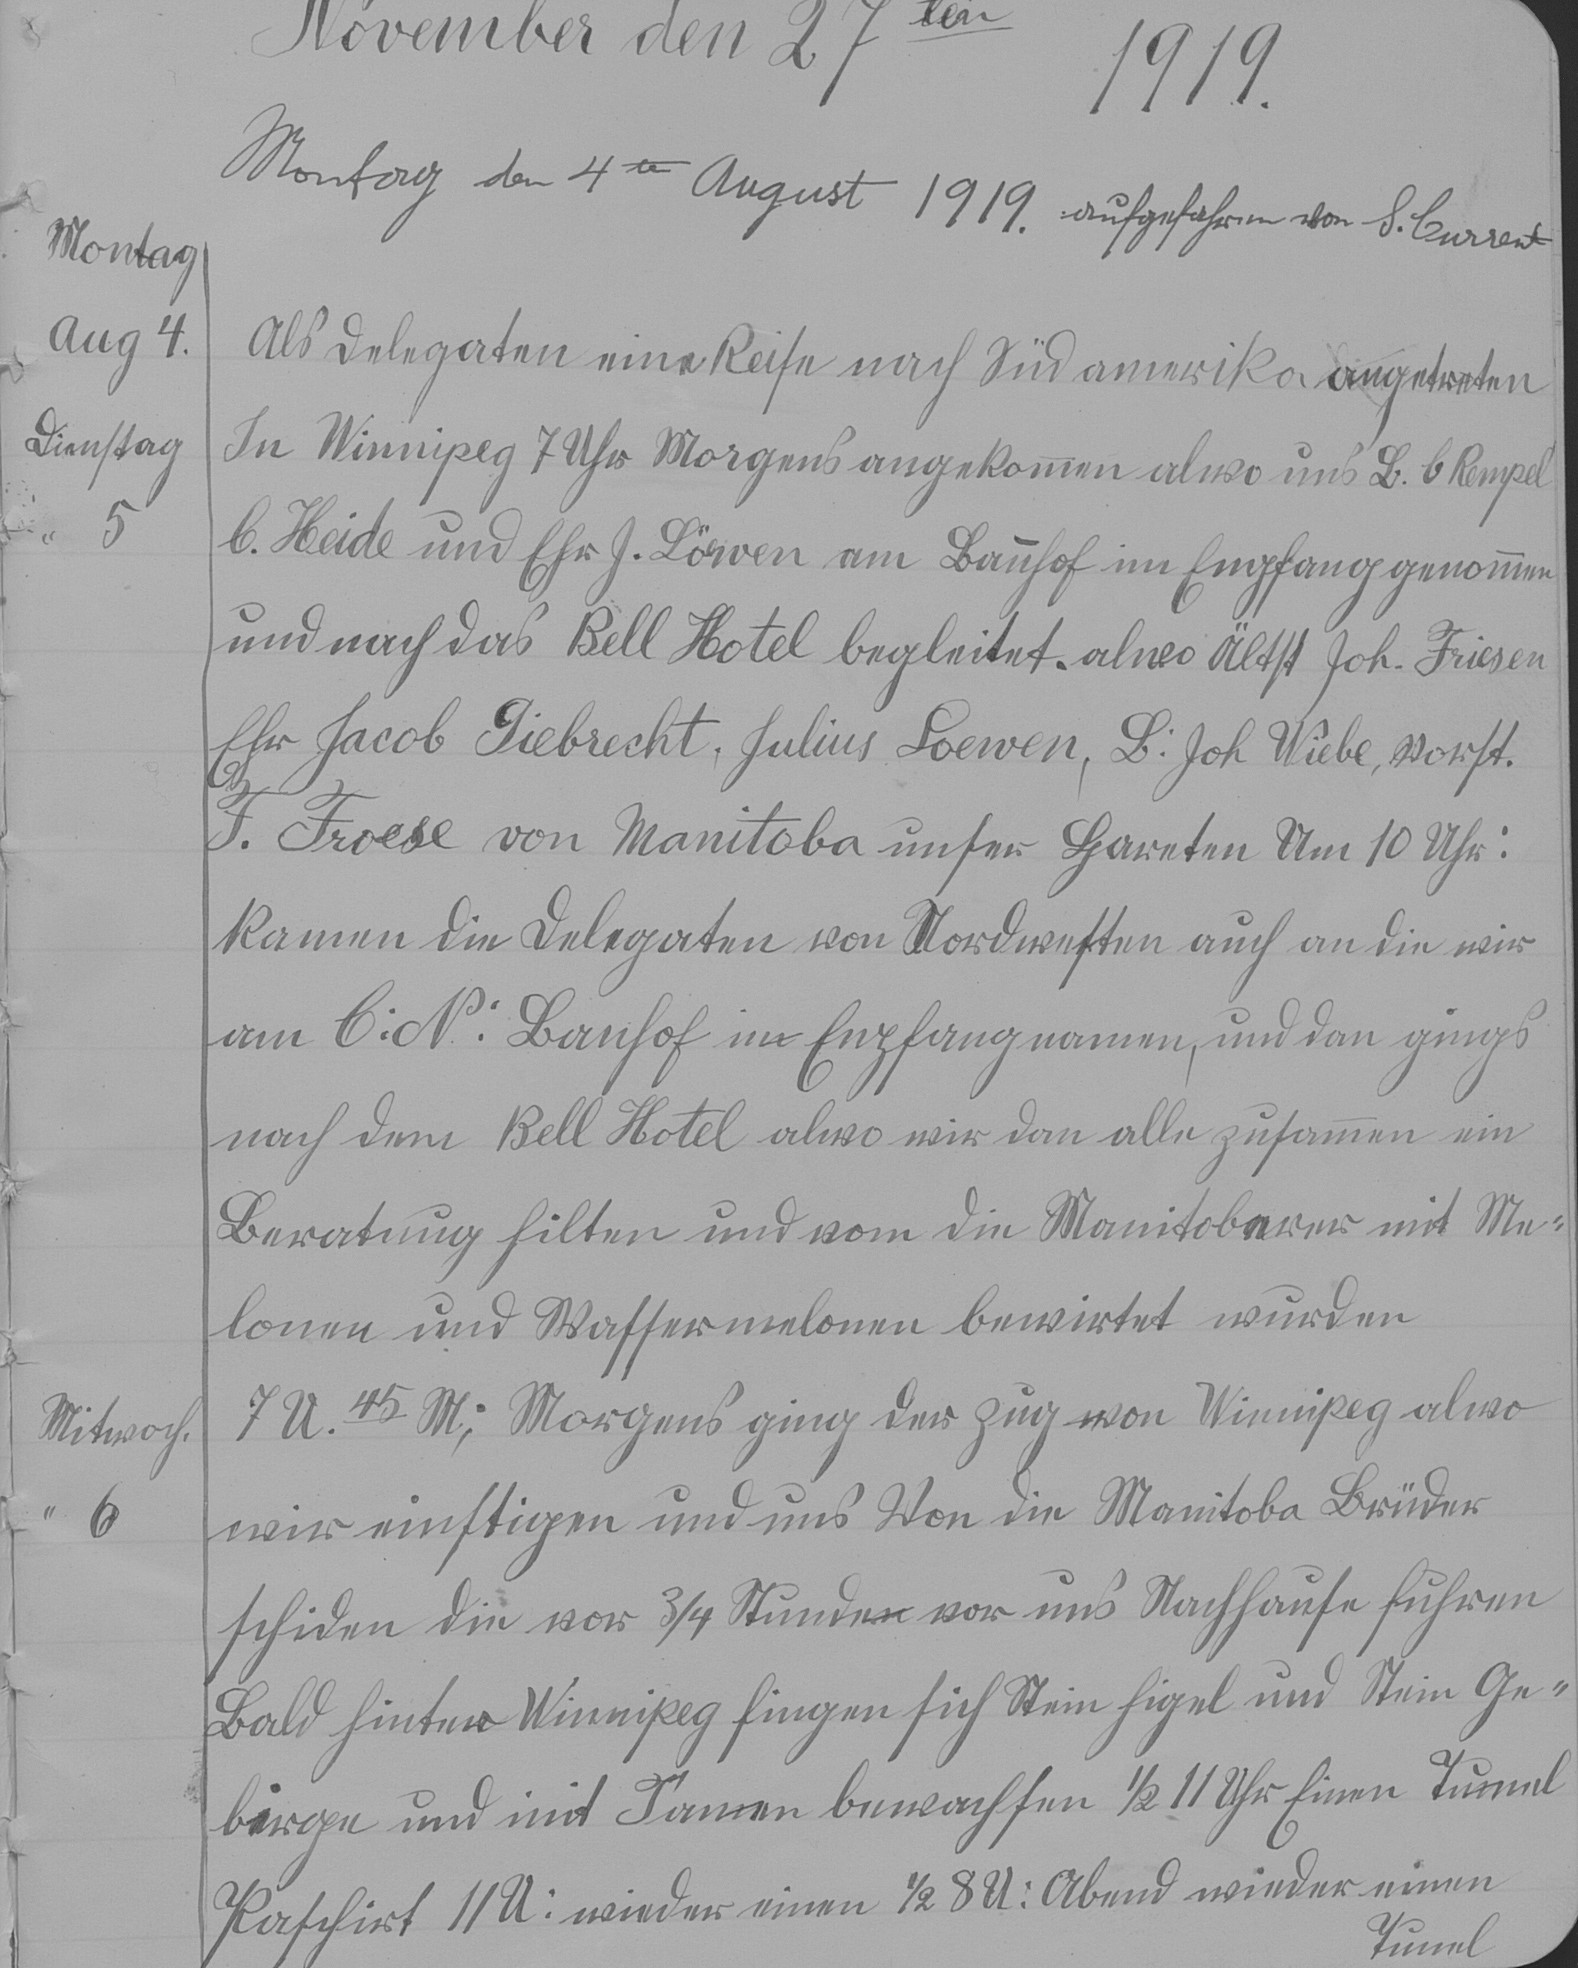 November den 27ten 1919.
Montag den 4te August 1919. aufgefahren von S. Current
Montag
Aug 4. Als Delegaten eine Reise nach Süd amerika angetreten
Dienstag In Winnipeg 7 Uhr Morgens angekom̄en alwo uns B. C Rempel
" 5 C. Heide und Ehr J. Löwen am Ban̄hof im Empfang genom̄en
und nach das Bell Hotel begleitet. alwo Ältst Joh. Friesen
Ehr Jacob Giebrecht, Julius Loewen, B: Joh Wiebe, Vorst.
F. Froese von Manitoba unser Hareten Um 10 Uhr:
kamen die Delegaten von Nordwesten auch an die wir
am C: N: Banhof im Enpfang namen, und dan gings
nach dem Bell Hotel alwo wir dan alle zusam̄en ein
Beratung hilten und vom die Manitobaer mit Me=
lonen und Wassermelonen bewirtet wurden
Mitwoch. 7 U. 45 M; Morgens ging der Zug von Winnipeg alwo
" 6 wir einstigen und uns Von die Manitoba Brüder
schiden die vor 3/4 Stunden vor uns Nachhause fuhren
Bald hinter Winnipeg fingen sich Stein higel und Stein Ge=
birge und mit Tamen bewachsen 1/2 11 Uhr Einen Tunnel
Paschirt 11 U: wieder einen 1/2 8 U: Abend wieder einen
Tunel